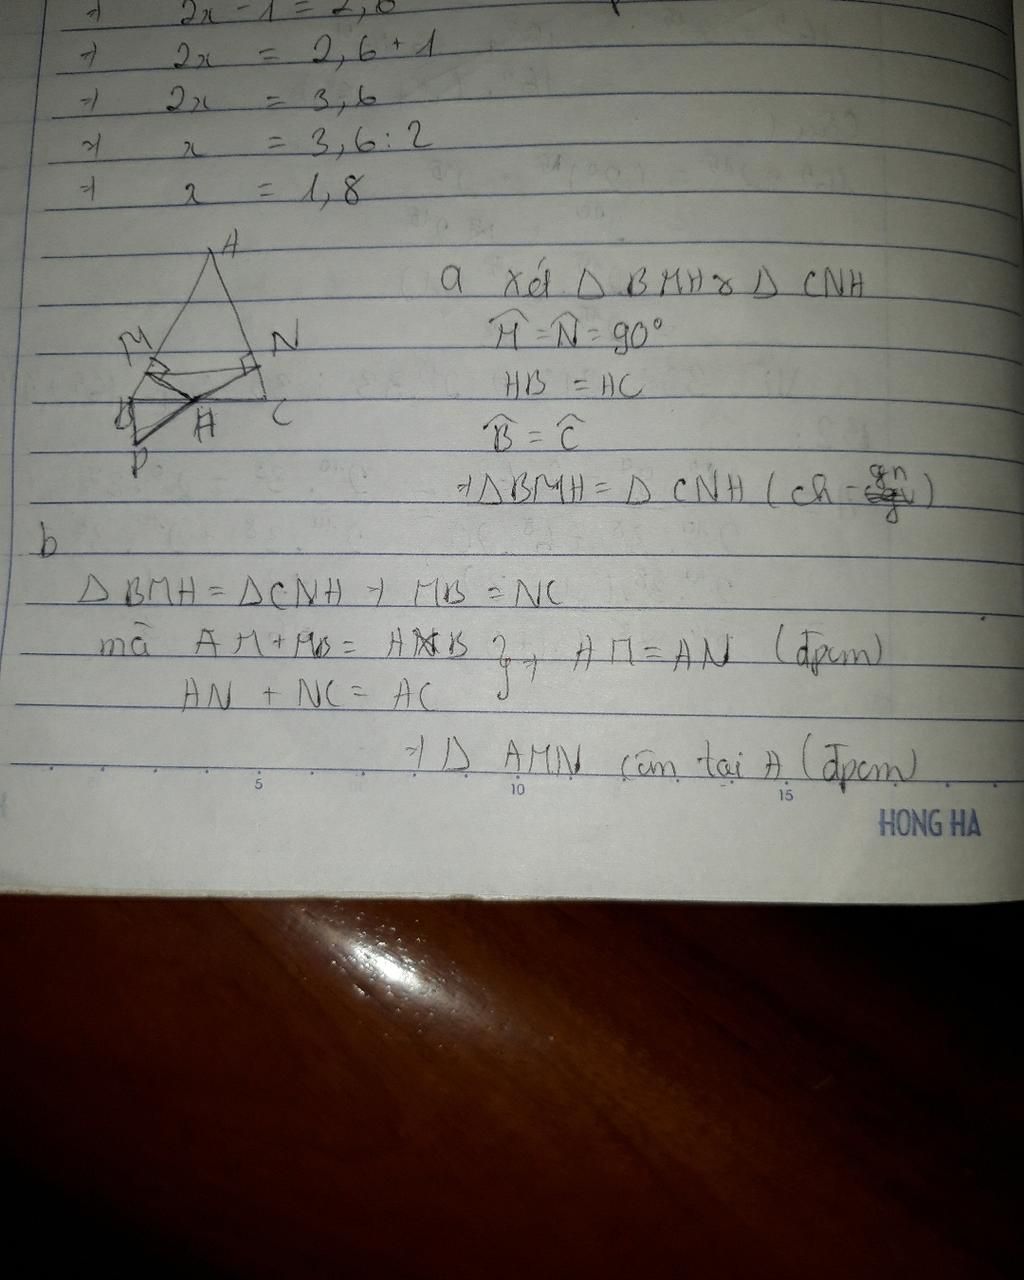 ⇒ 2x - 1 = 2,6
⇒ 2x = 2,6 + 1
⇒ 2x = 3,6
⇒ x = 3,6 : 2
⇒ x = 1,8
A
M N
B H C
P
a xét Δ BMH & Δ CNH
M̂ = N̂ = 90°
HB = HC
B̂ = Ĉ
⇒ Δ BMH = Δ CNH (ch - gn)
b
Δ BMH = Δ CNH ⇒ MB = NC
mà AM + MB = AB } ⇒ AM = AN (đpcm)
AN + NC = AC
⇒ Δ AMN cân tại A (đpcm)
5 10 15
HONG HA